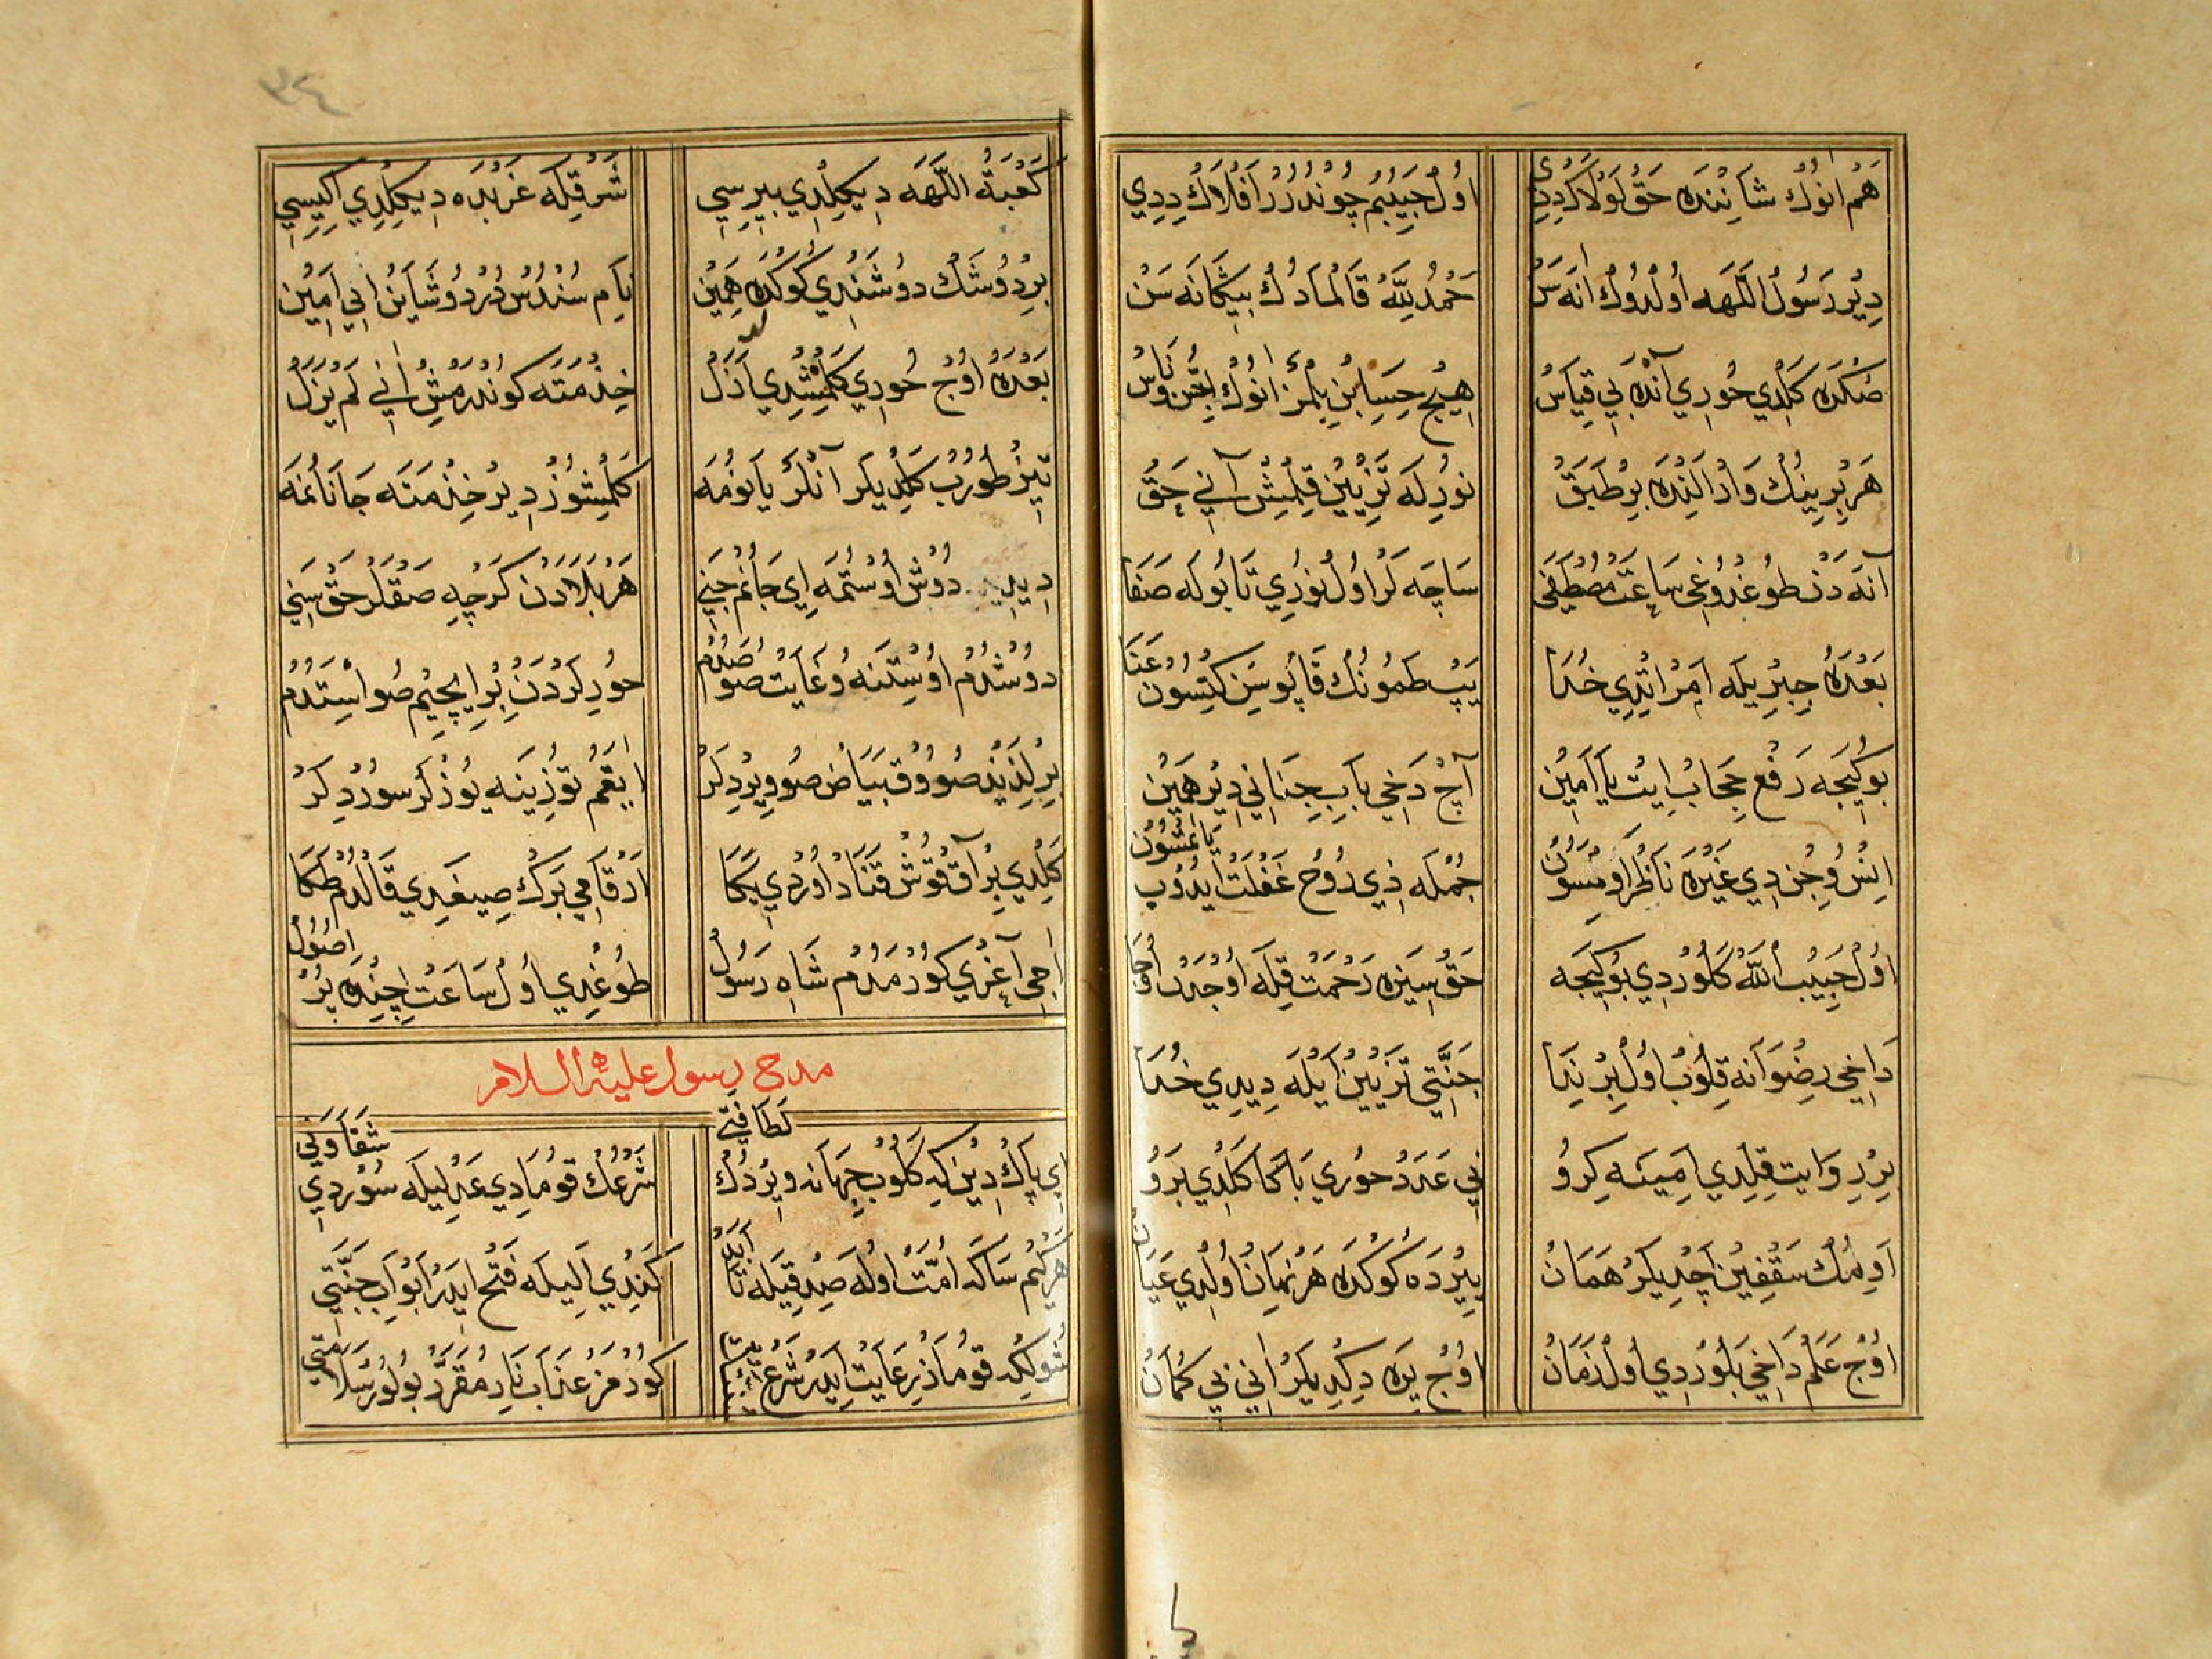 هَمْ اَنُوكْ شَانِنْدَه حَقْ لَوْلَاكْ دِدِي اُولْ حَبِيبُمْ چُونْدُرُرْ اَفْلَاكْ دِدِي
دِيْر رَسُولُ اللّٰهَه اُولْدُوكْ اَنَه سَنْ حَمْدُ لِلّٰهْ قَالْمَادُكْ بِيكَانَه سَنْ
صُكْرَه كَلْدِي حُورِي آنْدَه بِي قِيَاسْ هِيچْ حِسَابِنْ بِلْمَزْ اَنُوكْ جِنّ وُ نَاسْ
هَرْ بِرِينُكْ وَارْ اَلِنْدَه بِرْ طَبَقْ نُورِلَه تَزْيِينْ قِلْمِشْ آنِي حَقْ
آنَه دَنْ طُوغْدُوغِي سَاعَتْ مُصْطَفَى سَاچَه لَرْ اُولْ نُورِي تَا بُولَه صَفَا
بَعْدَهُ جِبْرِيلَه اَمْرْ اِتْدِي خُدَا يَپْ طَمُونُكْ قَاپُوسِنْ كِتْسُونْ عَنَا
بُو كِيجَه رَفْعِ حِجَابْ اِيتْ يَا اَمِينْ آچْ دَخِي بَابِ جِنَانِي دِيْر هَمِينْ
اِنْسُ وُ جِنْ دِي غَيْرَه نَاظِرْ اُومَسُونْ جُمْلَه ذِي رُوحْ غَفْلَتْ اِيدُوپْ يَاتْمَسُونْ
اُولْ حَبِيبُ اللّٰه كَلُورْدِي بُو كِيجَه حَقْ سِيزَه رَحْمَتْ قِلَه اُوجْدَنْ اُوجَا
دَاخِي رِضْوَانَه قِلُوبْ اُولْ بِرْ نِدَا جَنَّتِي تَزْيِينْ اَيْلَه دِيدِي خُدَا
بِرْ رِوَايَتْ قِلْدِي اَمِينَه كِرُو بِي عَدَدْ حُورِي بَاكَا كَلْدِي بَرُو
اَوِمُكْ سَقْفِينْ اَچْدِيلَرْ هَمَانْ بِيرْدَه كُوكْدَه هَرْ نَه مَانْ اُولْدِي عَيَانْ
اُوچْ عَلَمْ دَاخِي بَلُورْدِي اُولْ زَمَانْ اُوچْ يَرَه دِكْدِيلَرْ اِنِي بِي كُمَانْ
كَعْبَةُ اللّٰهَه دِيكِلْدِي بِيرِسِي شَرْقِلَه غَرْبْدَه دِيكِلْدِي اِكِيسِي
بِرْ دُوشَكْ دُوشَنْدِي كُوكْدَه هَمِينْ نَامِ سُنْدُسْ دُرْ دُوشَايَنْ اِنِي اَمِينْ
بَعْدَهُ اُوچْ حُورِي كَلْمِشْدِي اَزَلْ خِذْمَتَه كُونْدَرْمِشْ اِنِي لَمْ يَزَلْ
تِيزْ طُورُبْ كَلْدِيلَر آنْلَرْ يَانُومَه كَلْمِشُوزْ دِيرْ خِذْمَتَه جَانَانُمَه
دُوشْ اُوسْتُمَه اِي جَانُمْ جَنِي هَرْ بَلَادَنْ كَرْچِه صَقْلَرْ حَقْ سِنِي
دُوشْدُمْ اُوسْتِنَه وُ غَايَتْ صُوصَدُمْ حُورِلَرْدَنْ بِرْ اِيچِيمْ صُو اِسْتَدُمْ
بِرْ لَذِيذْ صُووُقْ بَيَاضْ صُو وِيرْدِلَرْ اَيَقُمْ تُوزِينَه يُوزْلَر سُورْدِلَرْ
كَلْدِي بِرْ آقْ قُوشْ قَنَادْ اُورْدِي بَكَا اَرْقَامِي بَرْكْ صِيغَدِي قَالْدُمْ طَكَا
اَجِي آغْرِي كُورْمَدُمْ شَاهِ رَسُولْ طُوغْدِي اُولْ سَاعَتْ اِچِنْدَه بُرْ اُصُولْ
مدح رسول عليه السلام
اِي پَاكْ دِينْ كِه كَلُوبْ جِهَانَه وِيرْدُكْ لَطَافَتِي شَرْعُكْ قُومَادِي عَدْلِيلَه سُورْدِي شَقَاوَتِي
هَرْ كِيمْ سَاكَه اُمَّتْ اُولَه صِدْقِيلَه تَا اَبَدْ كَنْدِي اَلِيلَه فَتْحْ اِيدَرْ اَبْوَابِ جَنَّتِي
شُولْكِه قُومَازْ رِعَايَتْ اِيدَرْ شَرْعُ كُورْمَزْ عَذَابِ نَارِ مُقَرَّرْ بُولُورْ سَلَامَتِي